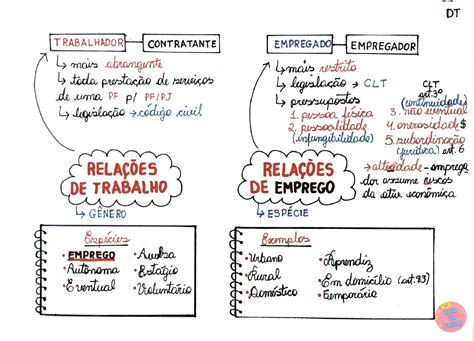 DT
TRABALHADOR CONTRATANTE
↳ mais abrangente
↳ toda prestação de serviços
de uma PF p/ PF/PJ
↳ legislação → código civil
RELAÇÕES
DE TRABALHO
↳ GÊNERO
Espécies
• EMPREGO
• Autônoma
• Eventual
• Avulsa
• Estágio
• Voluntário
EMPREGADO EMPREGADOR
↳ mais restrito
↳ legislação → CLT
↳ pressupostos
1. pessoa física
2. pessoalidade
(infungibilidade)
CLT
art. 3º
(continuidade)
3. não eventual
4. onerosidade $
5. subordinação
(jurídica) art. 6
↳ alteridade - emprega
dor assume riscos
da ativ. econômica
RELAÇÕES
DE EMPREGO
↳ ESPÉCIE
Exemplos
• Urbano
• Rural
• Doméstico
• Aprendiz
• Em domicílio (art. 83)
• Temporário